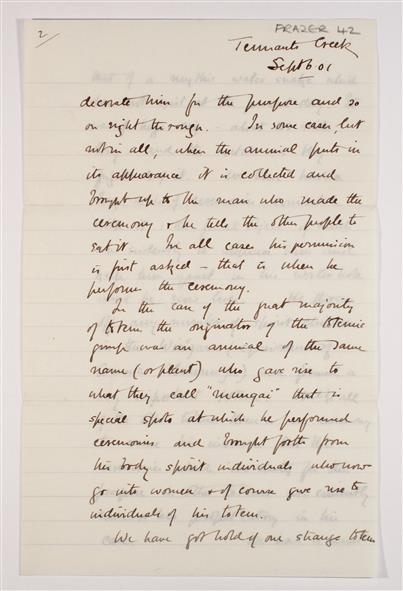 2/
FRAZER 42
Tennants Creek
Sept 6. 01
decorate him for the purpose and so
on right through. In some cases, but
not in all, when the animal puts in
its appearance it is collected and
brought up to the man who made the
ceremony & he tells the other people to
eat it. In all cases his permission
is first asked – that is when he
performs the ceremony.
In the case of the great majority
of totems the originator of the totemic
group was an animal of the same
name (or plant) who gave rise to
what they call "mungai" that is
special spots at which he performed
ceremonies and brought forth from
his body spirit individuals who now
go into women & of course give rise to
individuals of his totem.
We have got hold of one strange totem